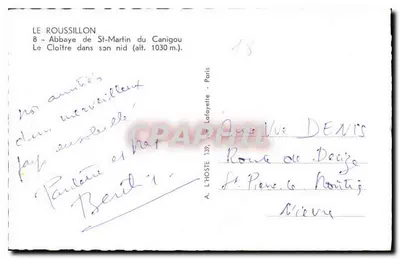 LE ROUSSILLON
8 - Abbaye de St-Martin du Canigou
Le Cloître dans son nid (alt. 1030 m.).
18
nos amitiés
d'un merveilleux
pays ensoleillé
A. L'HOSTE 139, Lafayette - Paris
CPARAMA
Vve DENIS
Route de Decize
St Pierre le
Nièvre